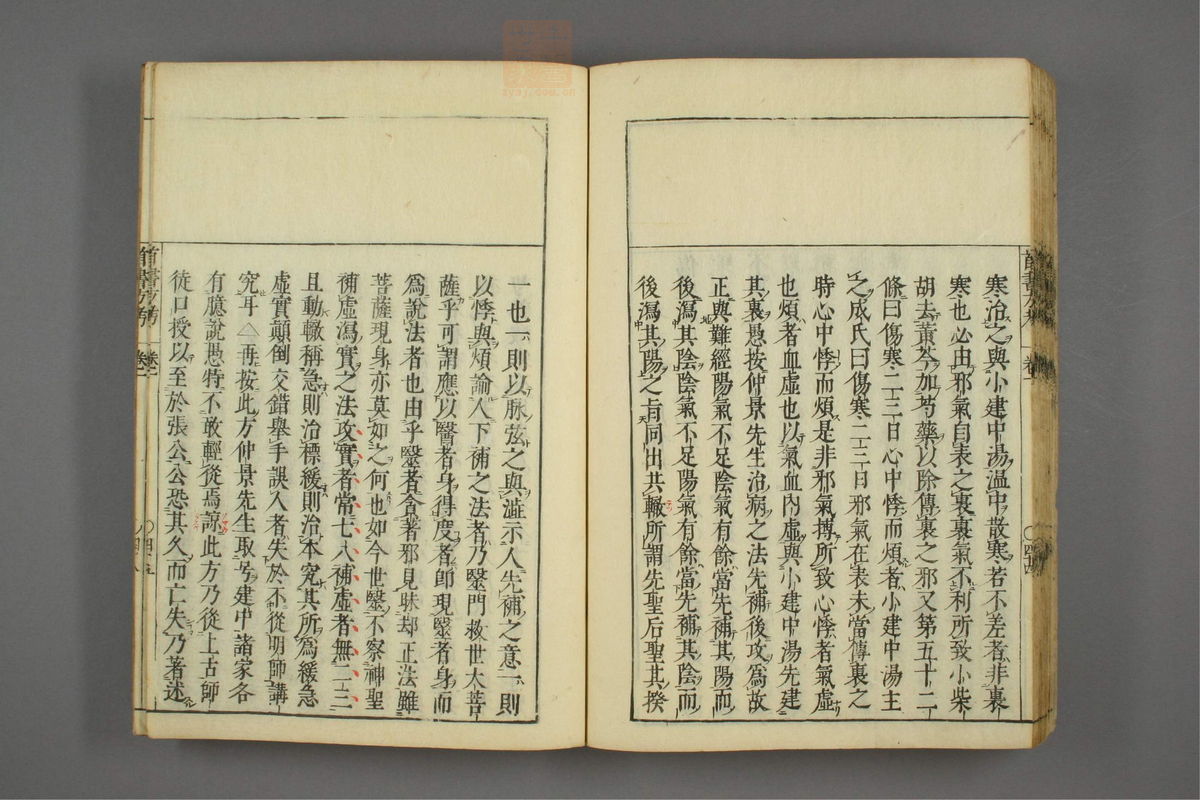 寒治之與小建中湯溫中散寒若不差者非裏
寒也必由邪氣自表之裏裏氣不利所致小柴
胡去黃芩加芍藥以除傳裏之邪又第五十二
條曰傷寒二三日心中悸而煩者小建中湯主
之成氏曰傷寒二三日邪氣在表未當傳裏之
時心中悸而煩是非邪氣搏所致心悸者氣虛
也煩者血虛也以氣血內虛與小建中湯先建
其裏愚按仲景先生治病之法先補後攻爲故
正與難經陽氣不足陰氣有餘當先補其陽而
後瀉其陰陰氣不足陽氣有餘當先補其陰而
後瀉其陽之旨同出共轍所謂先聖后聖其揆
一也一則以脉弦之與澁示人先補之意一則
以悸與煩論人下補之法者乃醫門救世大菩
薩乎可謂應以醫者身得度者卽現醫者身而
爲說法者也由乎醫者貪著邪見昧却正法雖
菩薩現身亦莫如之何也如今世醫不察神聖
補虛瀉實之法攻實者常七八補虛者無二三
且動輙稱急則治標緩則治本究其所爲緩急
虛實顚倒交錯舉手誤人者失於不從明師講
究耳△再按此方仲景先生取号建中諸家各
有臆說愚特不敢輕從焉諒此方乃從上古師
徒口授以至於張公公恐其久而亡失乃著述